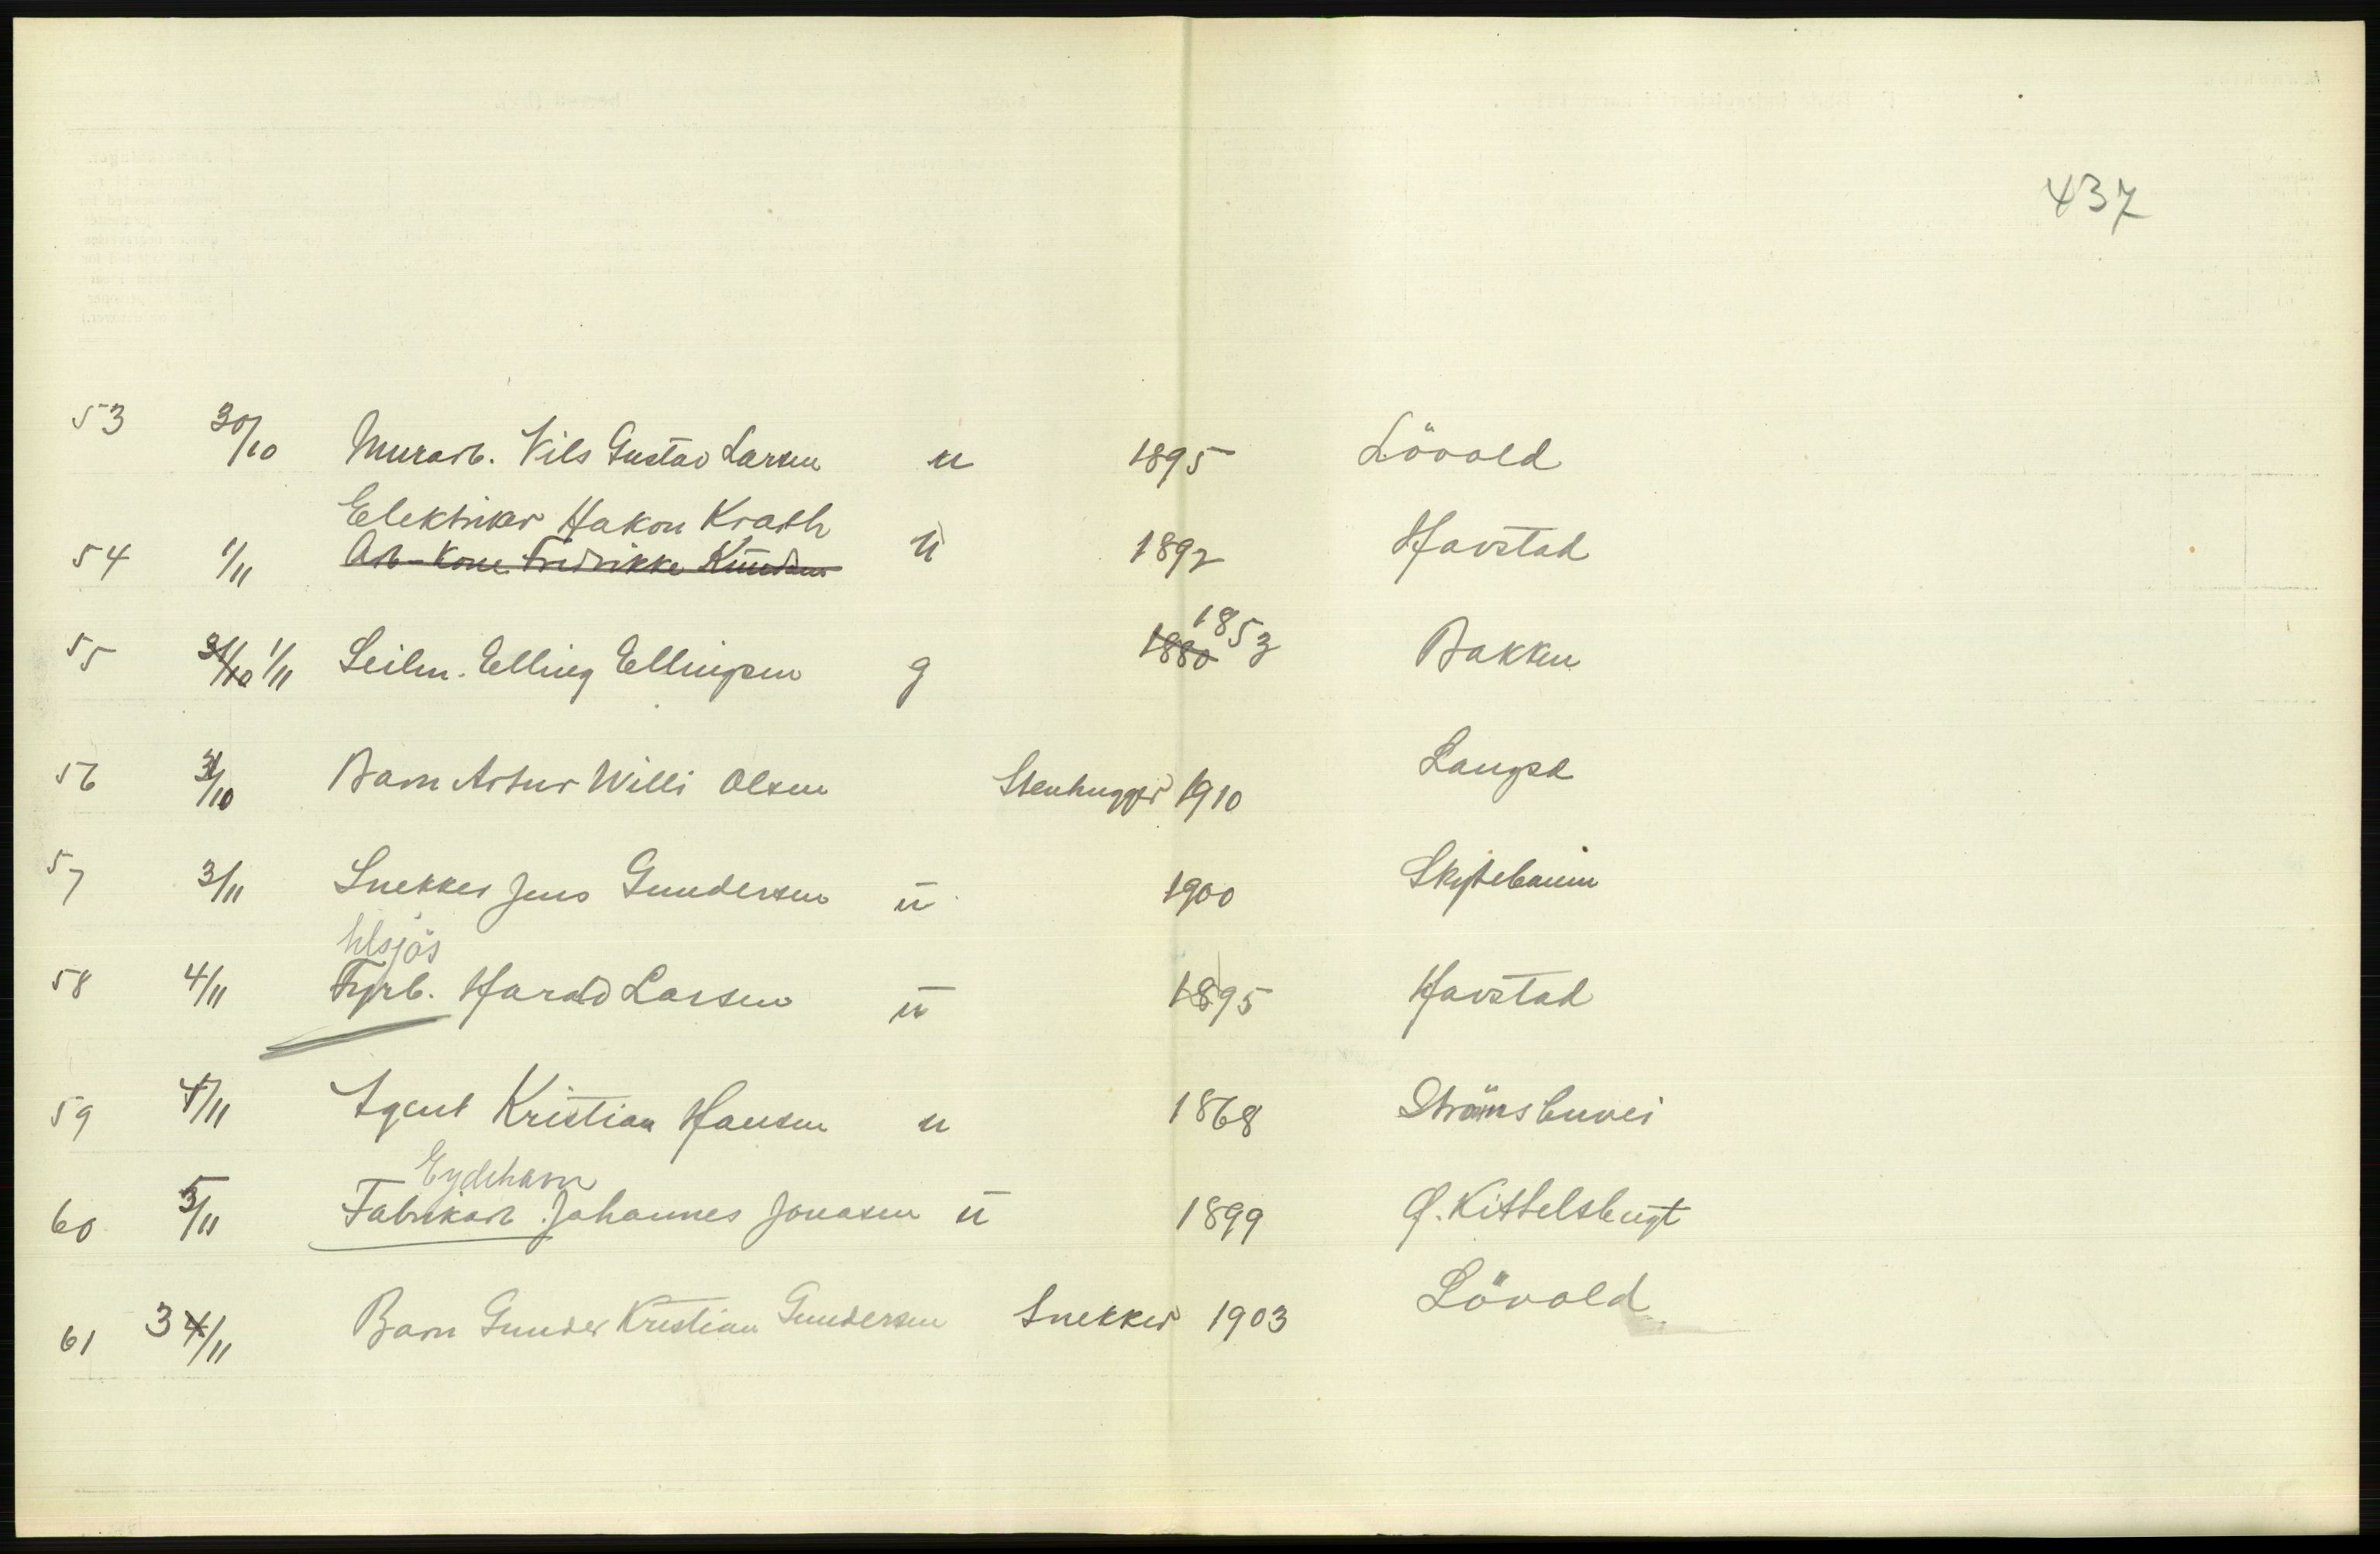 437
53 30/10 Murarb. Nils Gustav Larsen u 1895 Lövold
Elektriker Hakon Krath
54 1/11 Arb-kone Fredrikke Knudsen u 1892 Havstad
1853
55 31/10 1/11 Seilm. Elling Ellingsen g 1880 Bakken
56 31/10 Barn Artur Willi Olsen Stenhugger 1910 Langsæ
57 3/11 Snekker Jens Gundersen u 1900 Skytebanen
58 4/11 Fyrb. Harald Larsen u 1895 Havstad
59 4/11 Agent Kristian Hansen u 1868 Strömsbuvei
Eydehavn
60 5/11 Fabrikarb. Johannes Jonasen u 1899 Ø. Kittelsbugt
61 3 4/11 Barn Gunder Kristian Gundersen Snekker 1903 Lövold